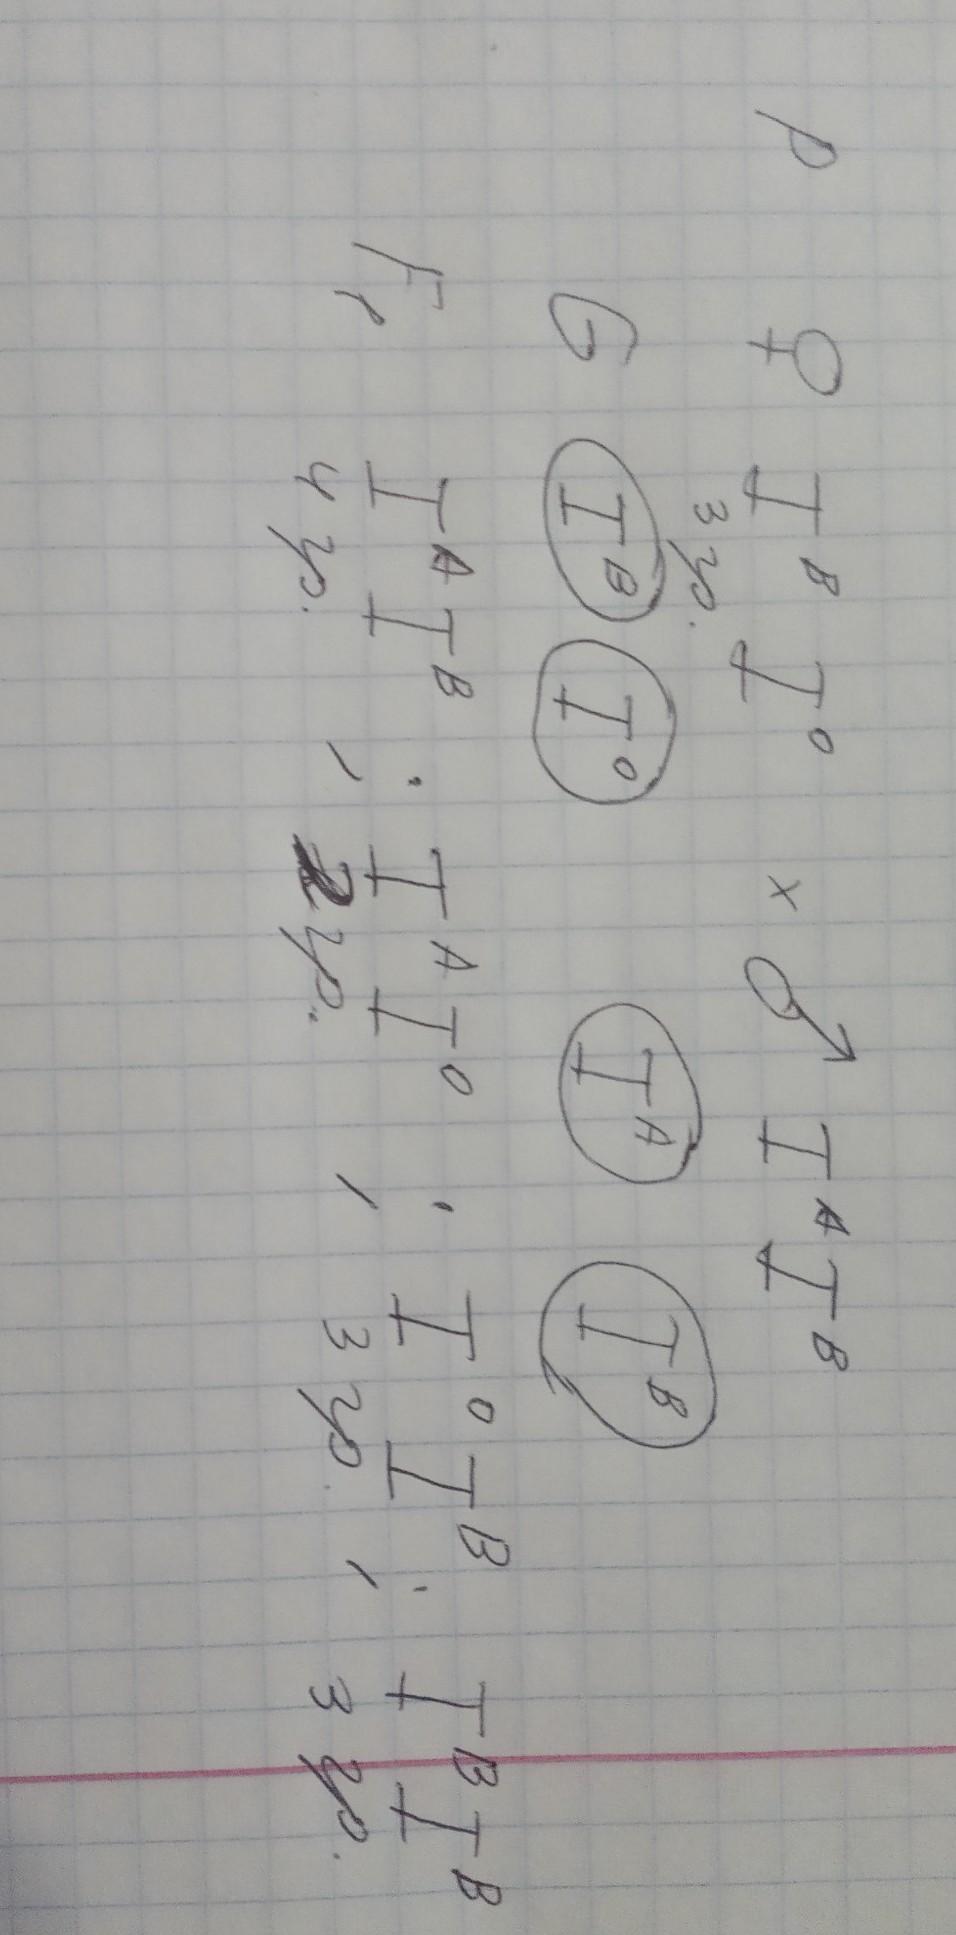 P ♀ Iᴮ Iᴼ × ♂ Iᴬ Iᴮ
3 гр.
G Iᴮ Iᴼ Iᴬ Iᴮ
F₁ IᴬIᴮ ; IᴬIᴼ ; IᴼIᴮ ; IᴮIᴮ
4 гр. , 2 гр. , 3 гр. , 3 гр.